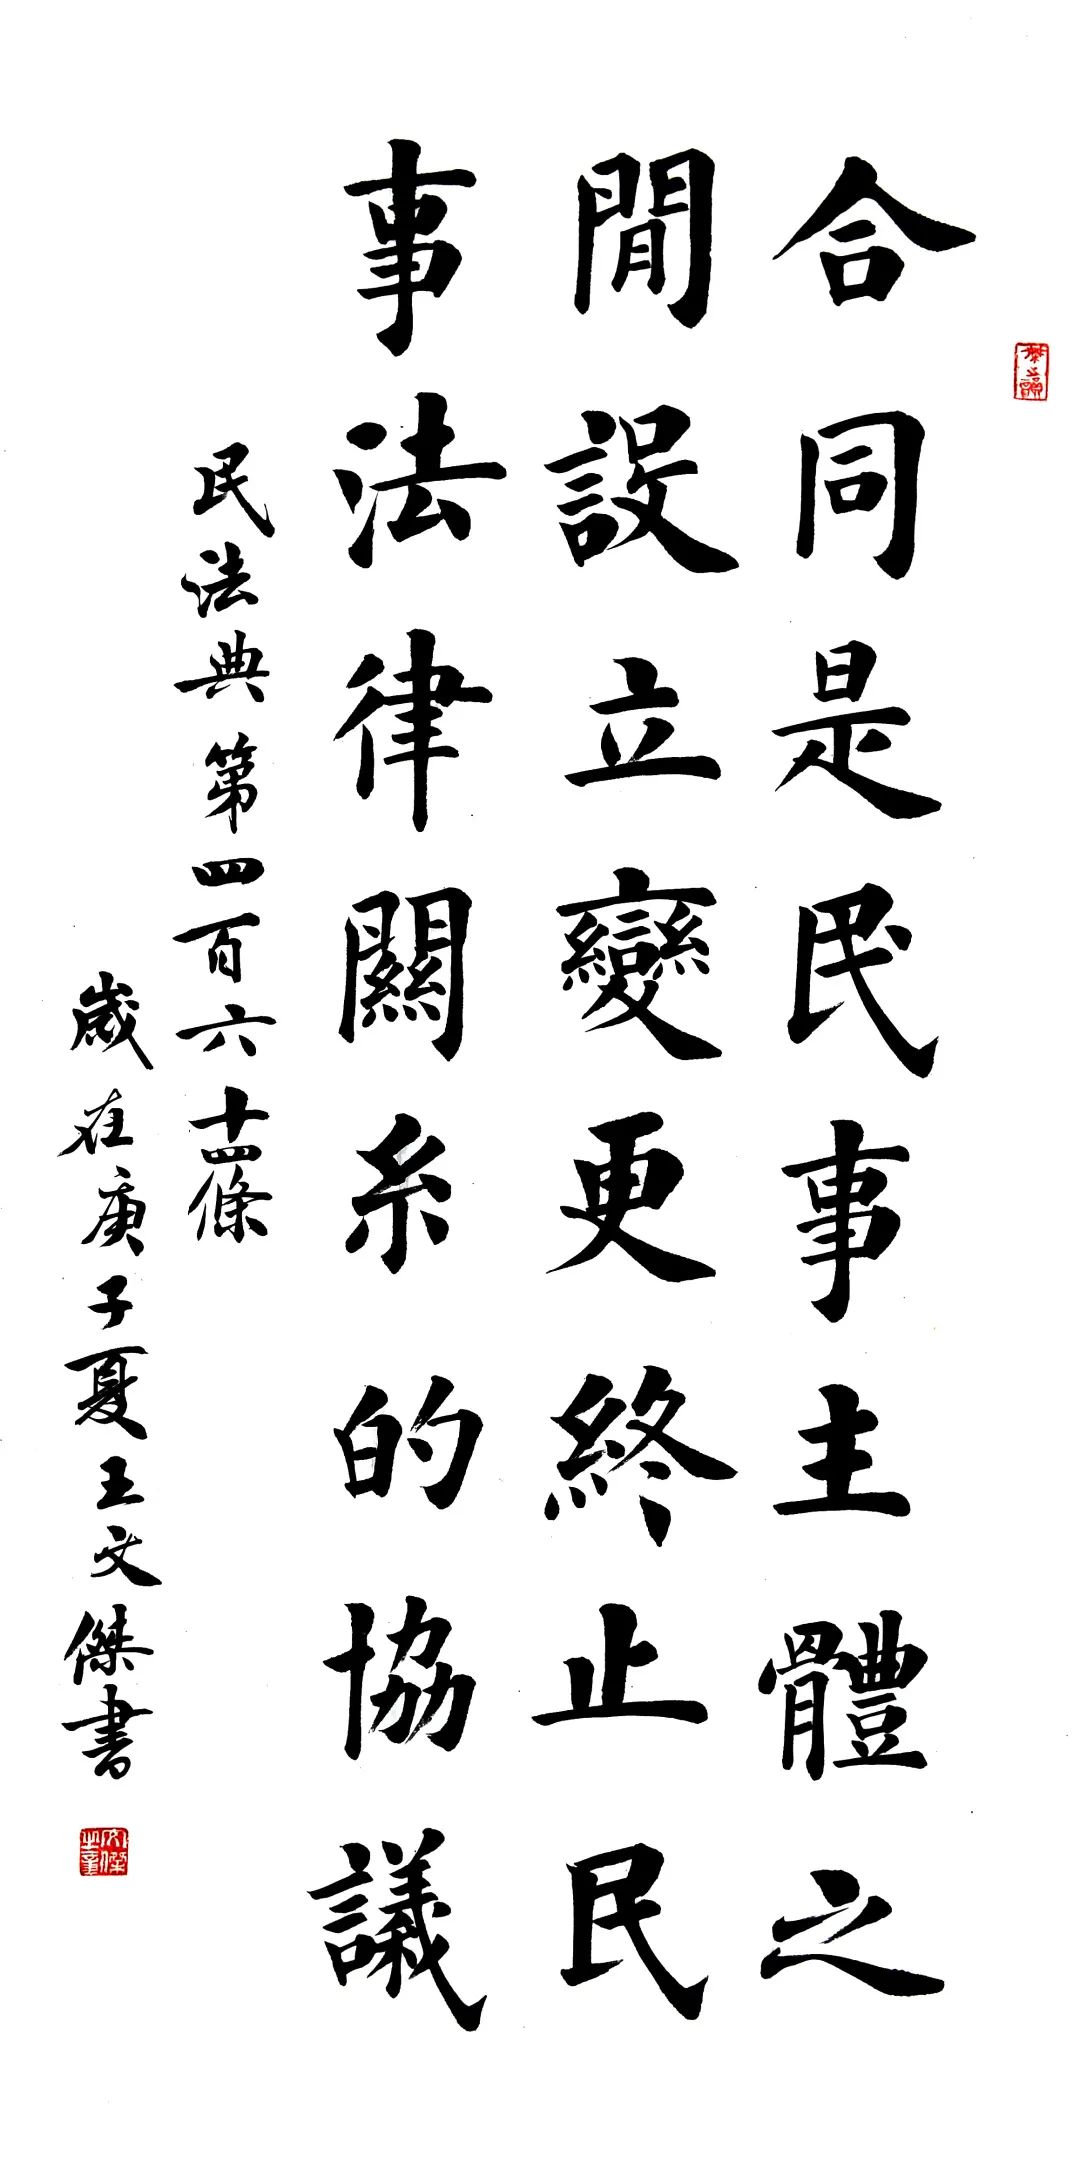 合同是民事主體之
閒設立變更終止民
事法律關系的協議
民法典第四百六十四條
歲在庚子夏王文傑書